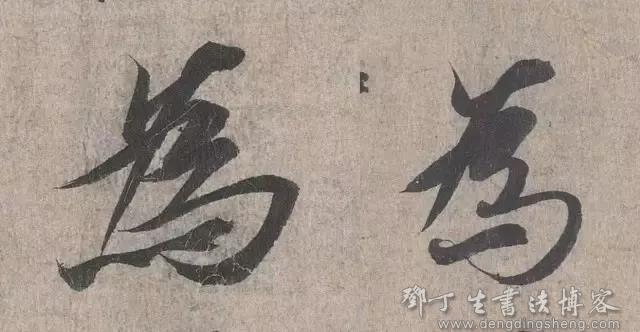 為 為
鄧丁生書法博客
www.dengdingsheng.com